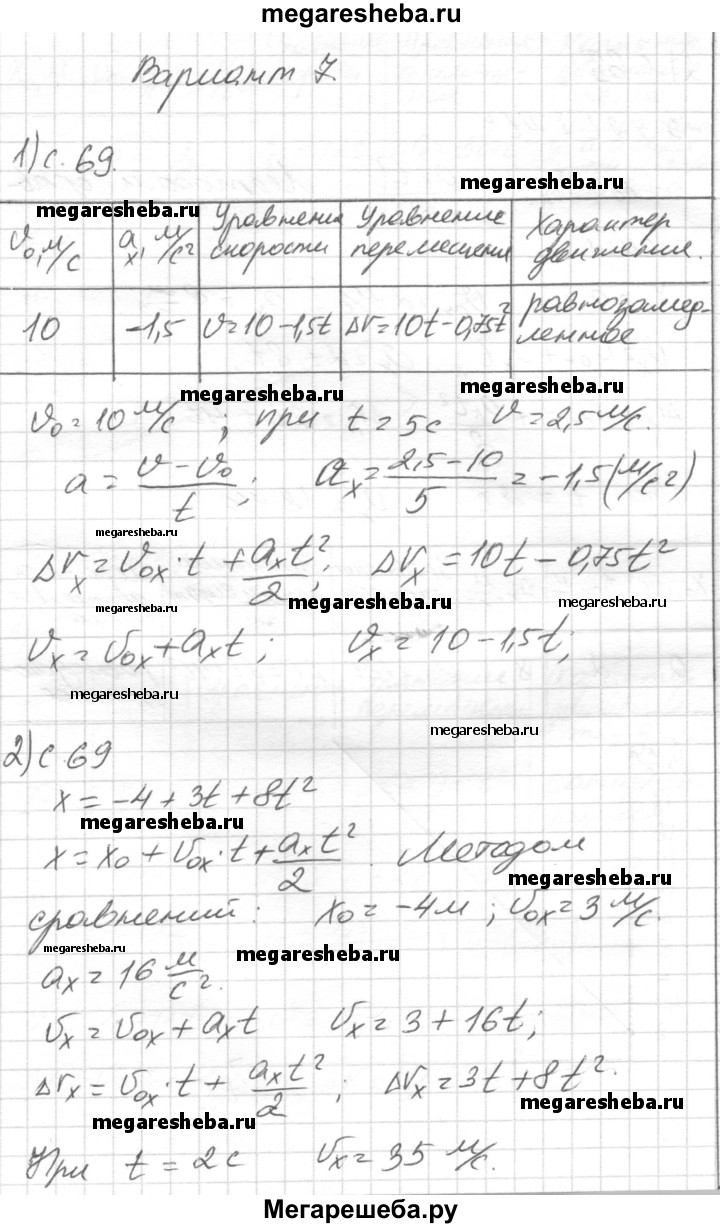 megaresheba.ru
Вариант 7.
1) с. 69.
megaresheba.ru
megaresheba.ru
υ₀, м/с | aₓ, м/с² | Уравнения скорости | Уравнение перемещения | Характер движения.
10 | -1,5 | υ=10-1,5t | Δr=10t-0,75t² | равнозамедленное
megaresheba.ru
megaresheba.ru
υ₀=10 м/с ; при t=5с υ=2,5 м/с.
a = (υ-υ₀)/t ; aₓ = (2,5-10)/5 = -1,5 (м/с²)
megaresheba.ru
Δrₓ=υ₀ₓ·t + aₓt²/2; Δrₓ=10t-0,75t²
megaresheba.ru
megaresheba.ru
megaresheba.ru
υₓ=υ₀ₓ+aₓt; υₓ=10-1,5t;
megaresheba.ru
megaresheba.ru
2) с 69
x=-4+3t+8t²
megaresheba.ru
x=x₀+υ₀ₓ·t+aₓt²/2. Методом
megaresheba.ru
сравнений: x₀=-4м; υ₀ₓ=3 м/с.
megaresheba.ru
megaresheba.ru
aₓ=16 м/с².
υₓ=υ₀ₓ+aₓt υₓ=3+16t;
Δrₓ=υ₀ₓ·t+ aₓt²/2; Δrₓ=3t+8t².
megaresheba.ru
megaresheba.ru
При t=2с υₓ=35 м/с.
Мегарешеба.ру